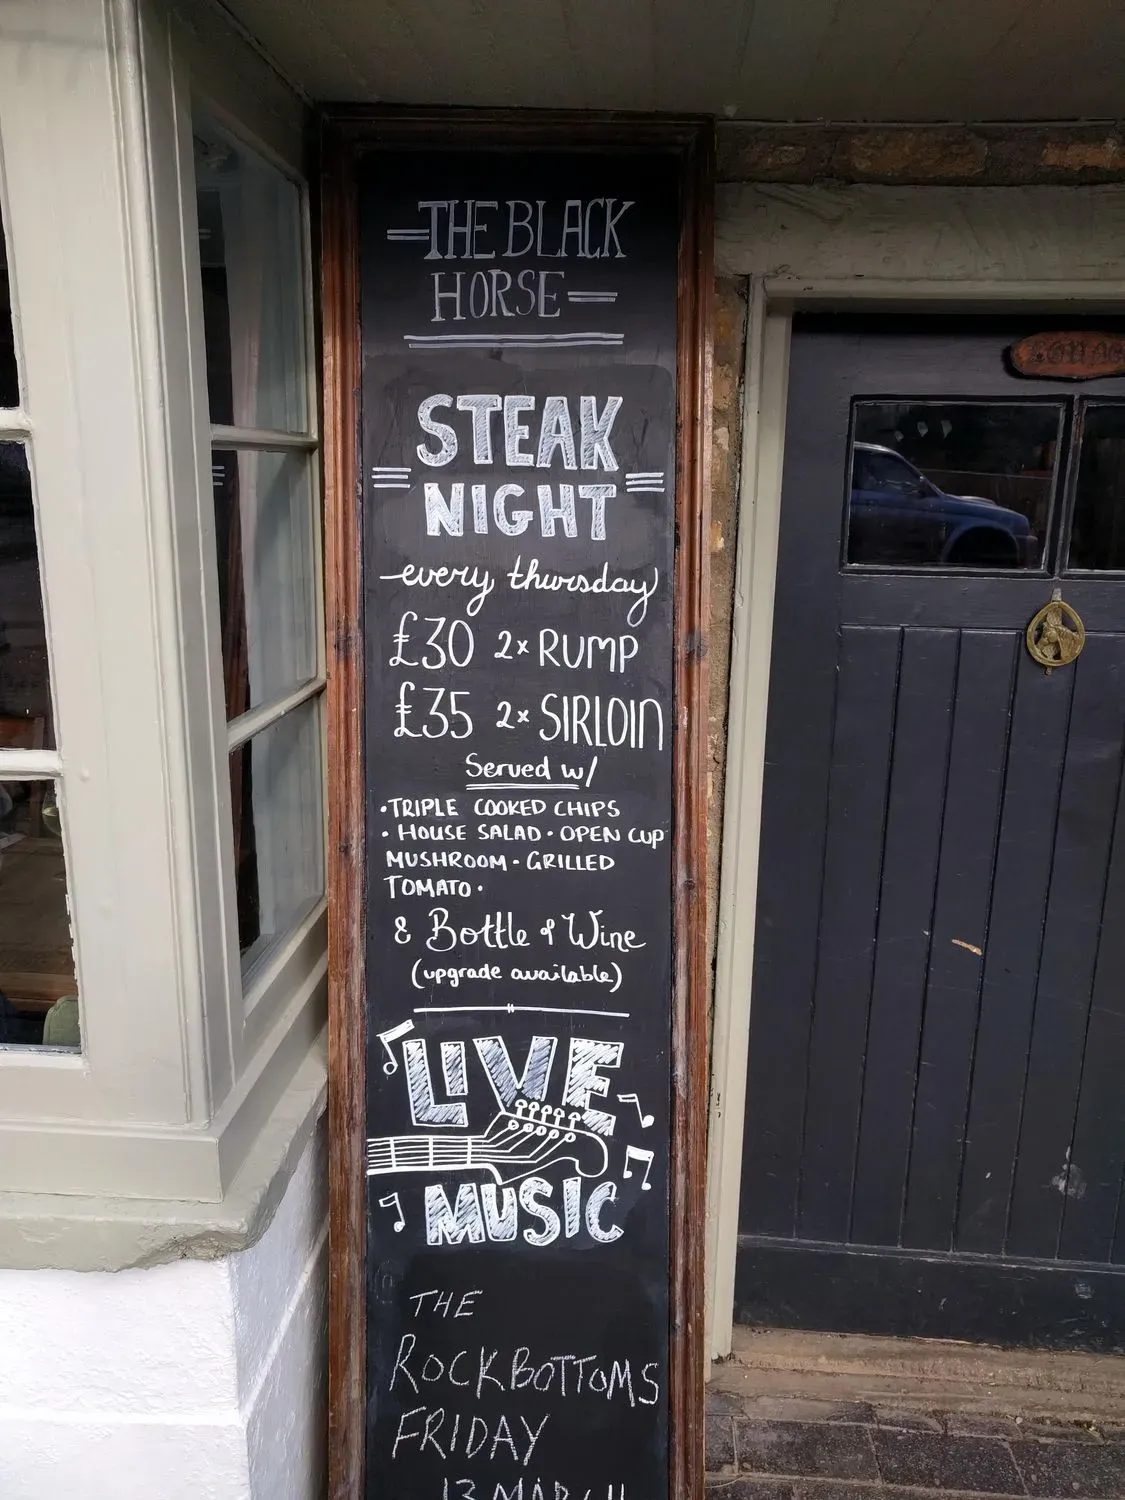 THE BLACK
HORSE
STEAK
NIGHT
every thursday
£30 2x RUMP
£35 2x SIRLOIN
Served w/
•TRIPLE COOKED CHIPS
• HOUSE SALAD • OPEN CUP
MUSHROOM • GRILLED
TOMATO •
& Bottle of Wine
(upgrade available)
LIVE
MUSIC
THE
ROCKBOTTOMS
FRIDAY
13 MARCH